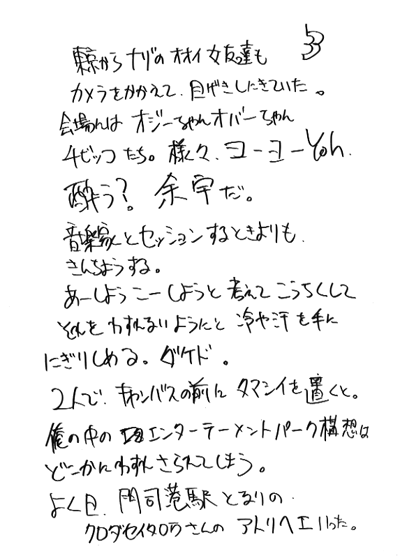 東京から ナゾの オオイ 女友達も
カメラをかかえて、目げきしにきていた。
会場には オジーちゃんオバーちゃん
チビッコたち。様々、ヨーヨーYoh.
酔う? 余宇だ。
音楽家とセッションするときよりも
きんちょうする。
あーしよう こーしようと 考えて こうちくして
それを わすれないようにと 冷や汗を手に
にぎりしめる。ダケド。
2人で、キャンバスの前に タマシイを置くと。
俺の中の エンターテーメントパーク構想は
どこかにわすれさられてしまう。
よく日、門司港駅 となりの
クロダセイタロウさんの アトリヘエいった。